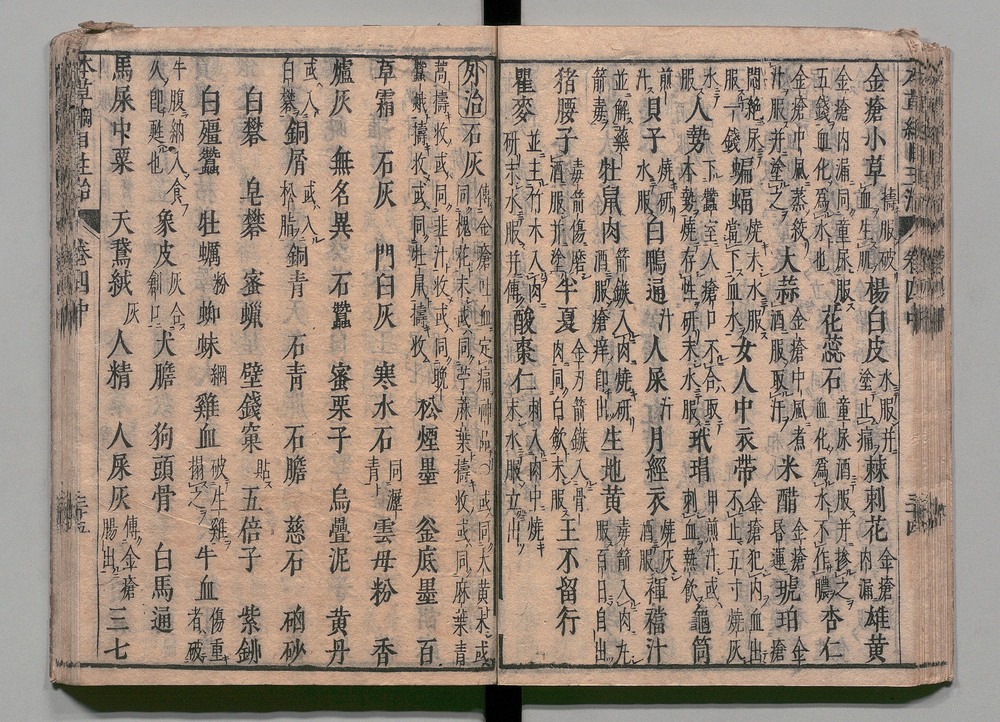 金瘡小草 擣服破血生肌 楊白皮 水服并塗止痛 棘刺花 金瘡肉漏 雄黃
金瘡肉漏同童尿服五錢血化爲水也 花蕊石 童尿酒服并摻之血化爲水不作膿 杏仁
金瘡中風蒸絞汁服并塗之 大蒜 金瘡中風煮酒服取汗 米醋 金瘡昏運 琥珀 金瘡
悶絶尿服一錢 蝙蝠 燒末水服當下血水 女人中衣帶 金瘡犯內血出不止五寸燒灰
水服 人勢 下蠶室人瘡口不合取本勢燒存性研末水服 玳瑁 甲煎汁或刺血熱飲 龜筒
煎汁 貝子 燒研水服 白鴨通汁 人屎汁 月經衣 燒灰酒服 褌襠汁
並解藥箭毒 牡鼠肉 箭鏃入肉燒研酒服瘡痒即出 生地黃 毒箭入肉丸服百日自出
猪腰子 毒箭傷磨酒服并塗 半夏 金刃箭鏃入骨肉同白斂末服 王不留行
瞿麥 並主竹木入肉研末水服并傅 酸棗仁 刺入肉中燒末水服立出
外治 石灰 傅金瘡吐血定痛神品或同大黃末或同槐花末或同苧麻葉擣收或同麻葉青
蒿擣收或同韭汁收或同晚蠶蛾擣收或同牡鼠擣收 松煙墨 釜底墨 百
草霜 石灰 門臼灰 寒水石 同瀝青 雲母粉 香
爐灰 無名異 石蠶 蜜栗子 烏疊泥 黃丹
或入白礬 銅屑 或入松脂 銅青 石青 石膽 慈石 硇砂
白礬 皂礬 蜜蠟 壁錢窠 貼 五倍子 紫鉚
白殭蠶 牡蠣粉 蜘蛛網 雞血 破生雞搨之 牛血 傷重者破
牛腹納入食久即甦也 象皮 灰合創口 犬膽 狗頭骨 白馬通
馬屎中粟 天鵞絨灰 人精 人屎灰 傅金瘡腸出 三七